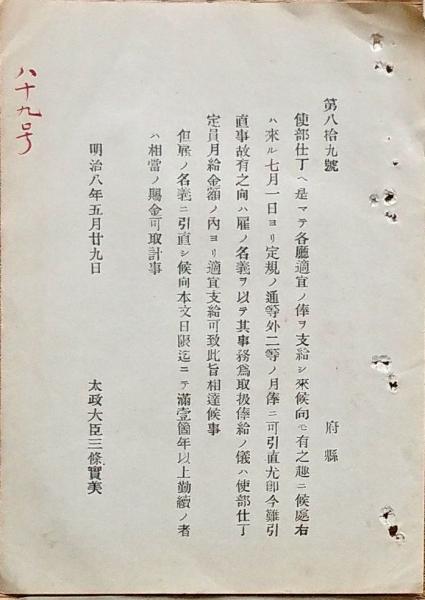 第八拾九號
府縣
使部仕丁ヘ是マテ各廳適宜ノ俸ヲ支給シ來候向モ有之趣ニ候處右
ハ來ル七月一日ヨリ定規ノ通等外二等ノ月俸ニ可引直尤即今難引
直事故有之向ハ雇ノ名義ヲ以テ其事務爲取扱俸給ノ儀ハ使部仕丁
定員月給金額ノ內ヨリ適宜支給可致此旨相達候事
但雇ノ名義ニ引直シ候向本文日限迄ニテ滿壹箇年以上勤續ノ者
ハ相當ノ賜金可取計事
明治八年五月廿九日
太政大臣三條實美
八十九号